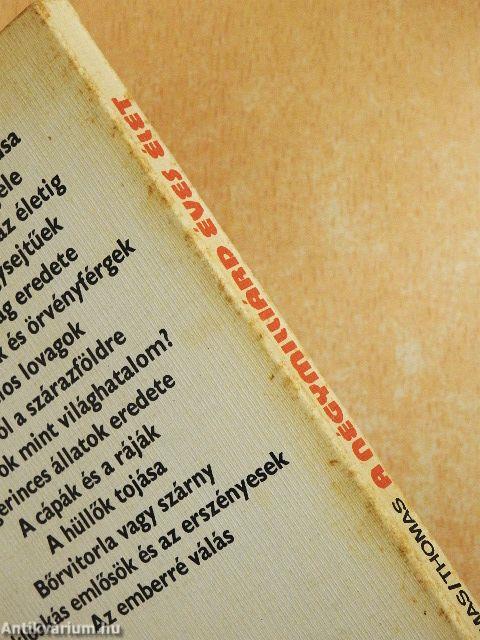 az életig
eredete
és örvényférgek
lovagok
a szárazföldre
mint világhatalom?
állatok eredete
A cápák és a ráják
A hüllők tojása
Bőrvitorla vagy szárny
emlősök és az erszényesek
Az emberré válás
A NÉGYMILLIÁRD ÉVES ÉLET
/THOMAS
Antikvarium.hu